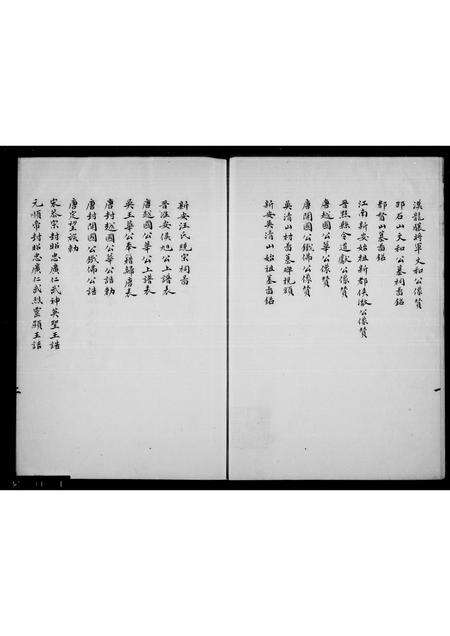 漢龍驤將軍文和公像贊
邵石山文和公墓祠啚銘
都督山墓啚銘
江南新安始祖新都侯澈公像贊
晉黟縣令道獻公像贊
唐越國公華公像贊
唐開國公鐵佛公像贊
吳清山村啚墓碑規額
新安吳清山始祖墓啚銘
新安汪氏統宗祠啚
晉淮安侯旭公上譜表
唐越國公華公上譜表
吳王華公奉籍歸唐表
唐封越國公華公誥勅
唐封開國公鐵佛公誥
唐定望族勅
宋恭宗封昭忠廣仁武神英聖王誥
元順帝封昭忠廣仁武烈靈顯王誥